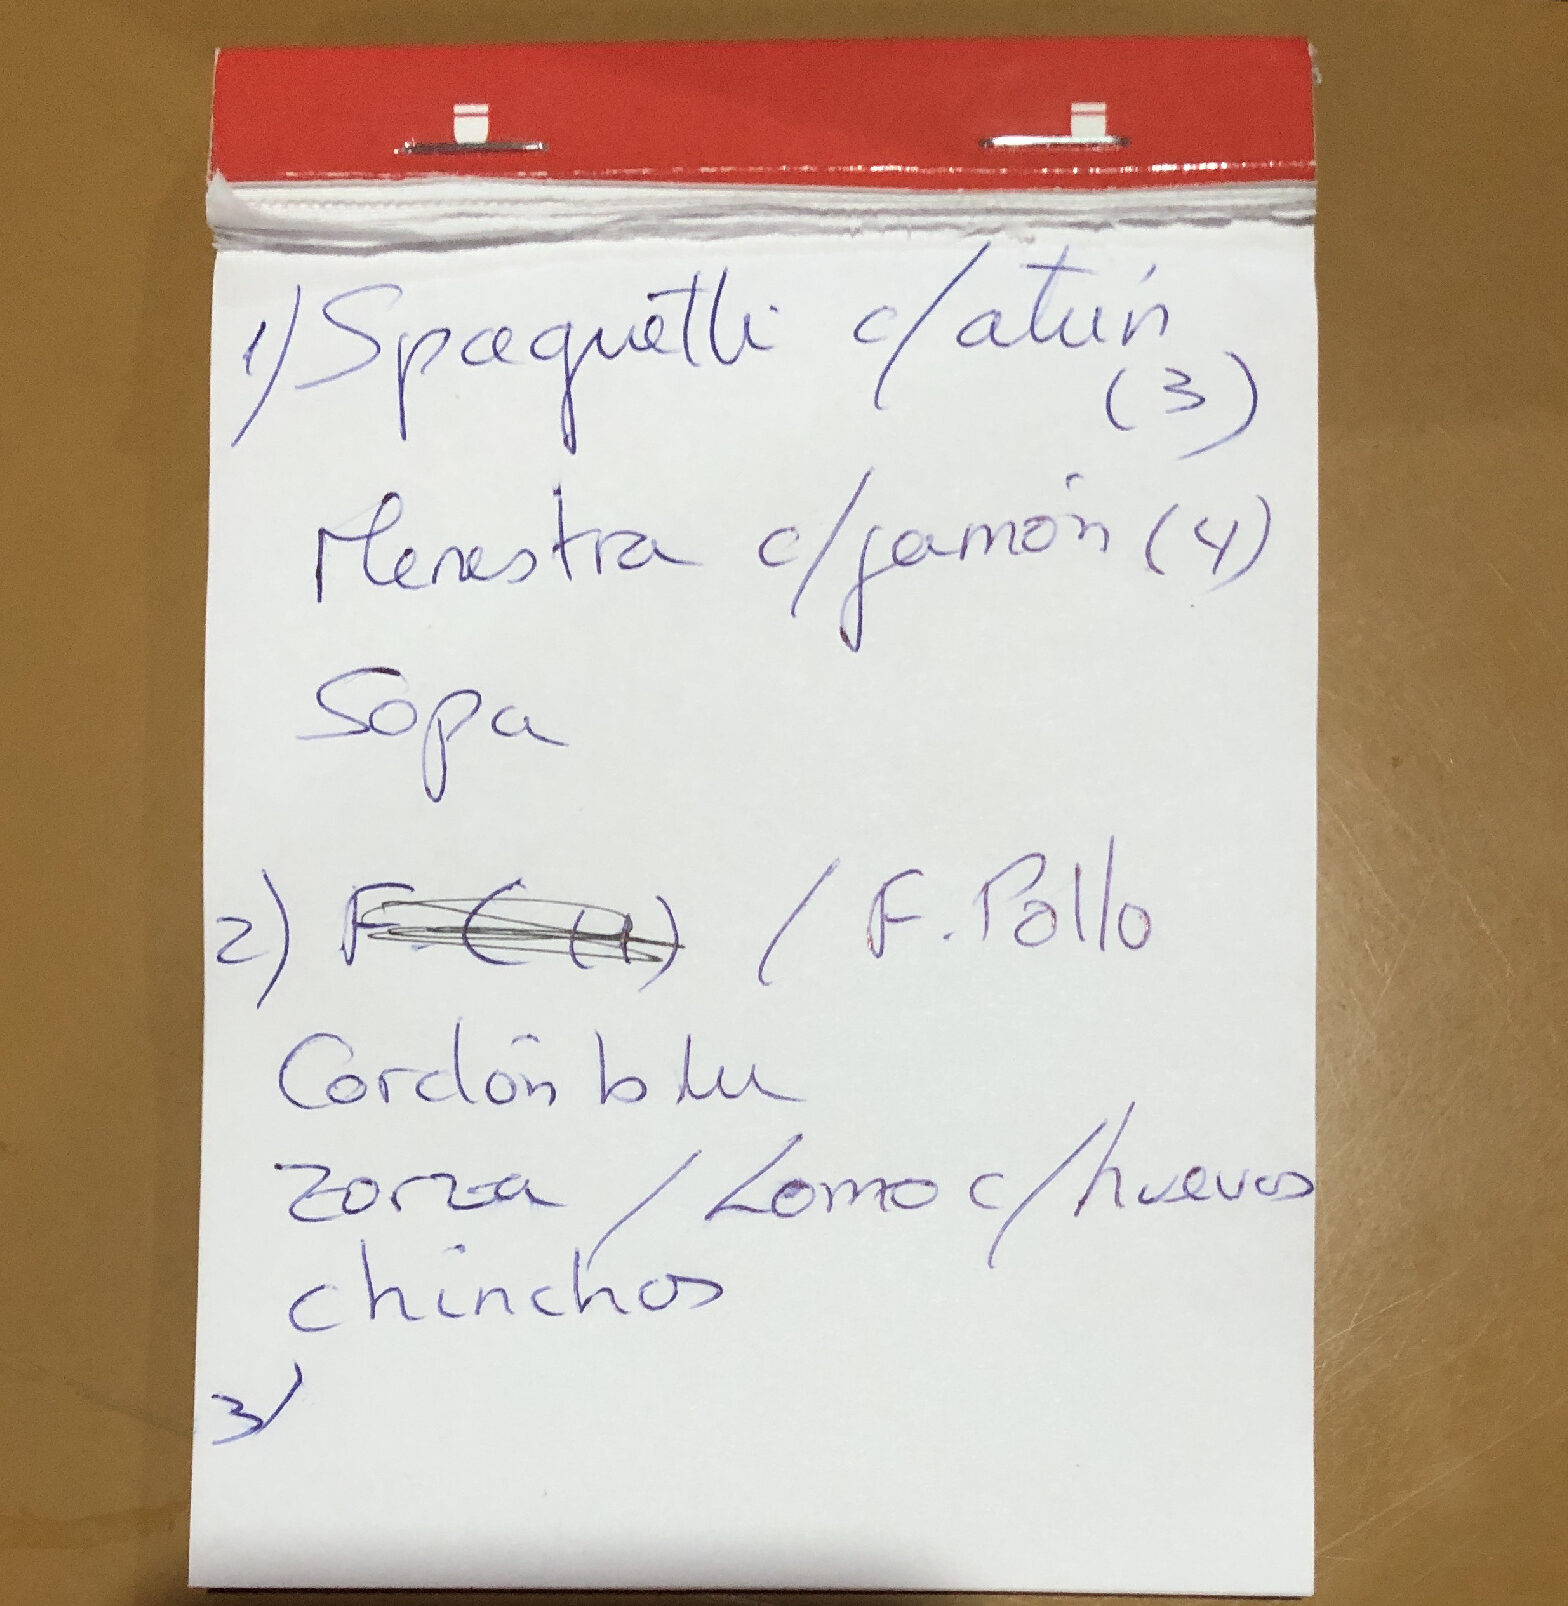 1) Spaguetti c/atún
(3)
Menestra c/jamón (4)
Sopa
2) F. C (1) / F. Pollo
Cordón blu
Zorza / Lomo c/huevos
chinchos
3)